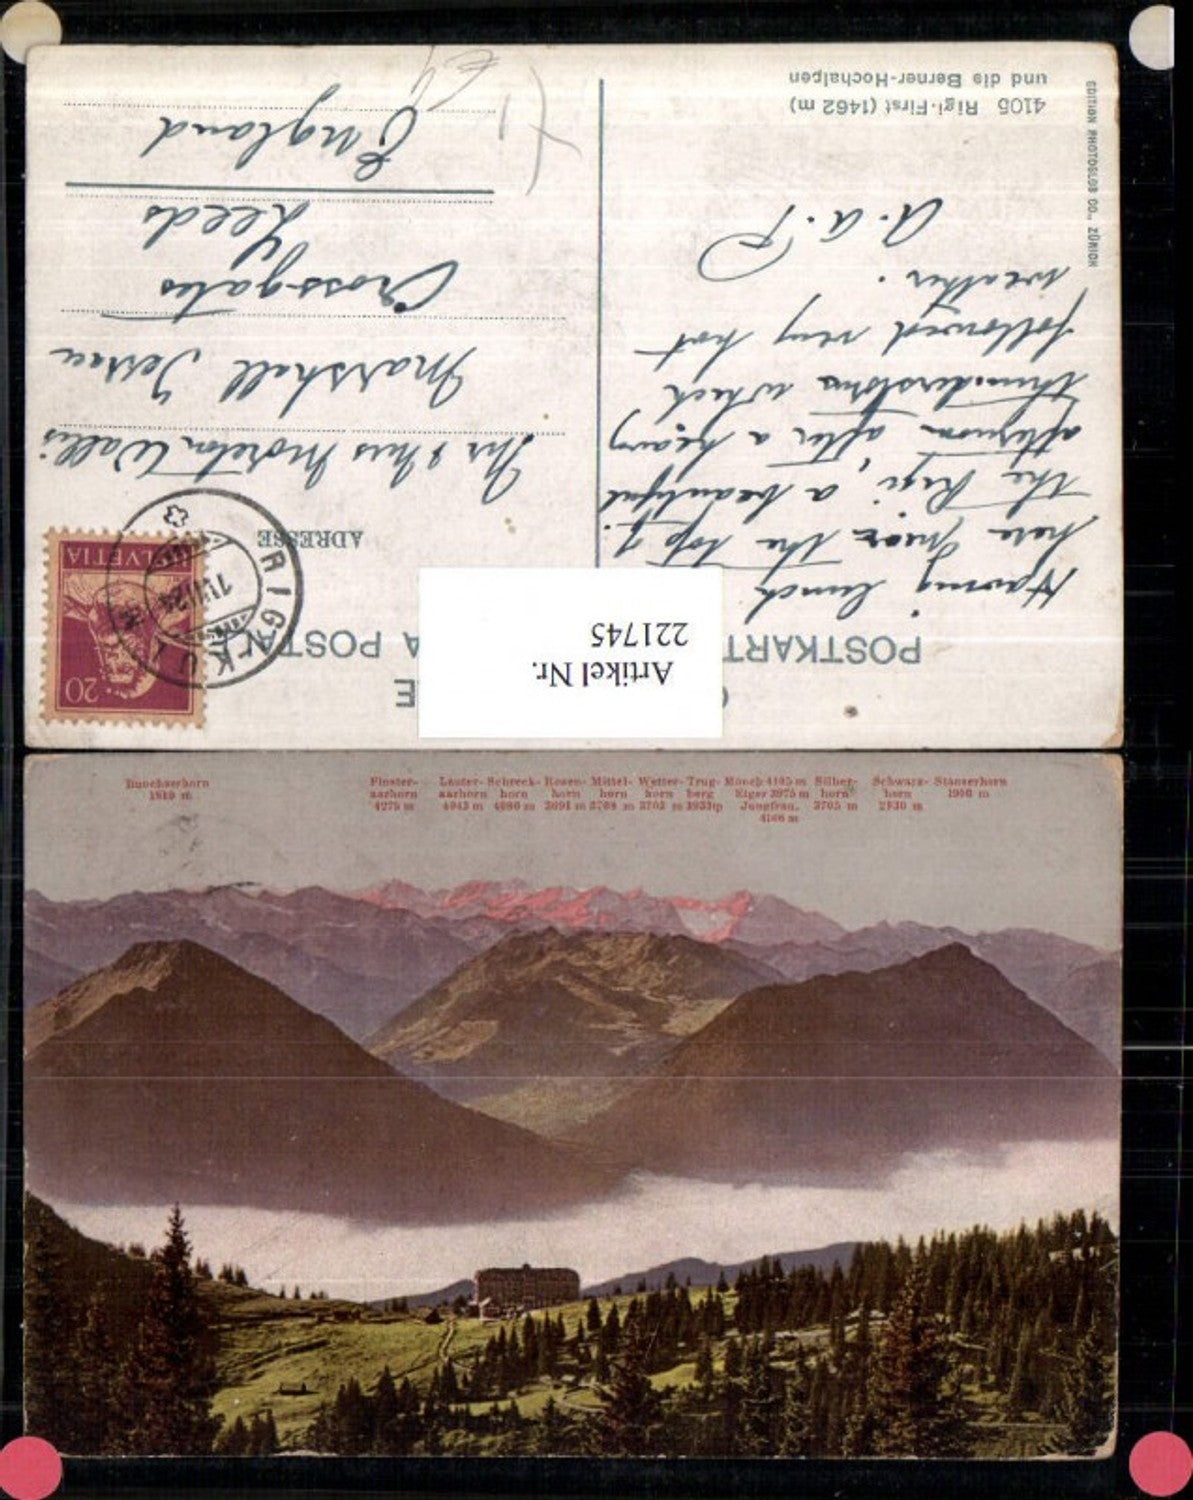 CARTE
POSTKARTE
CARTOLINA POSTALE
Artikel Nr.
221745
HELVETIA
20
RIGI-KULM
ADRESSE
Having lunch
here near the top of
the Rigi, a beautiful
afternoon after a heavy
thunderstorm which
followed very hot
weather.
A.A.P
Mr & Mrs Moreton Wallis
Marshall Terrace
Crossgates
Leeds
England
4105 Rigi-First (1462 m)
und die Berner-Hochalpen
EDITION PHOTOGLOB CO., ZÜRICH
Buochserhorn
1810 m
Finster-
aarhorn
4275 m
Lauter-
aarhorn
4043 m
Schreck-
horn
4080 m
Rosen-
horn
3691 m
Mittel-
horn
3708 m
Wetter-
horn
3703 m
Trug-
berg
3933 m
Mönch 4105 m
Eiger 3975 m
Jungfrau.
4166 m
Silber-
horn
3705 m
Schwarz-
horn
2930 m
Stanserhorn
1900 m